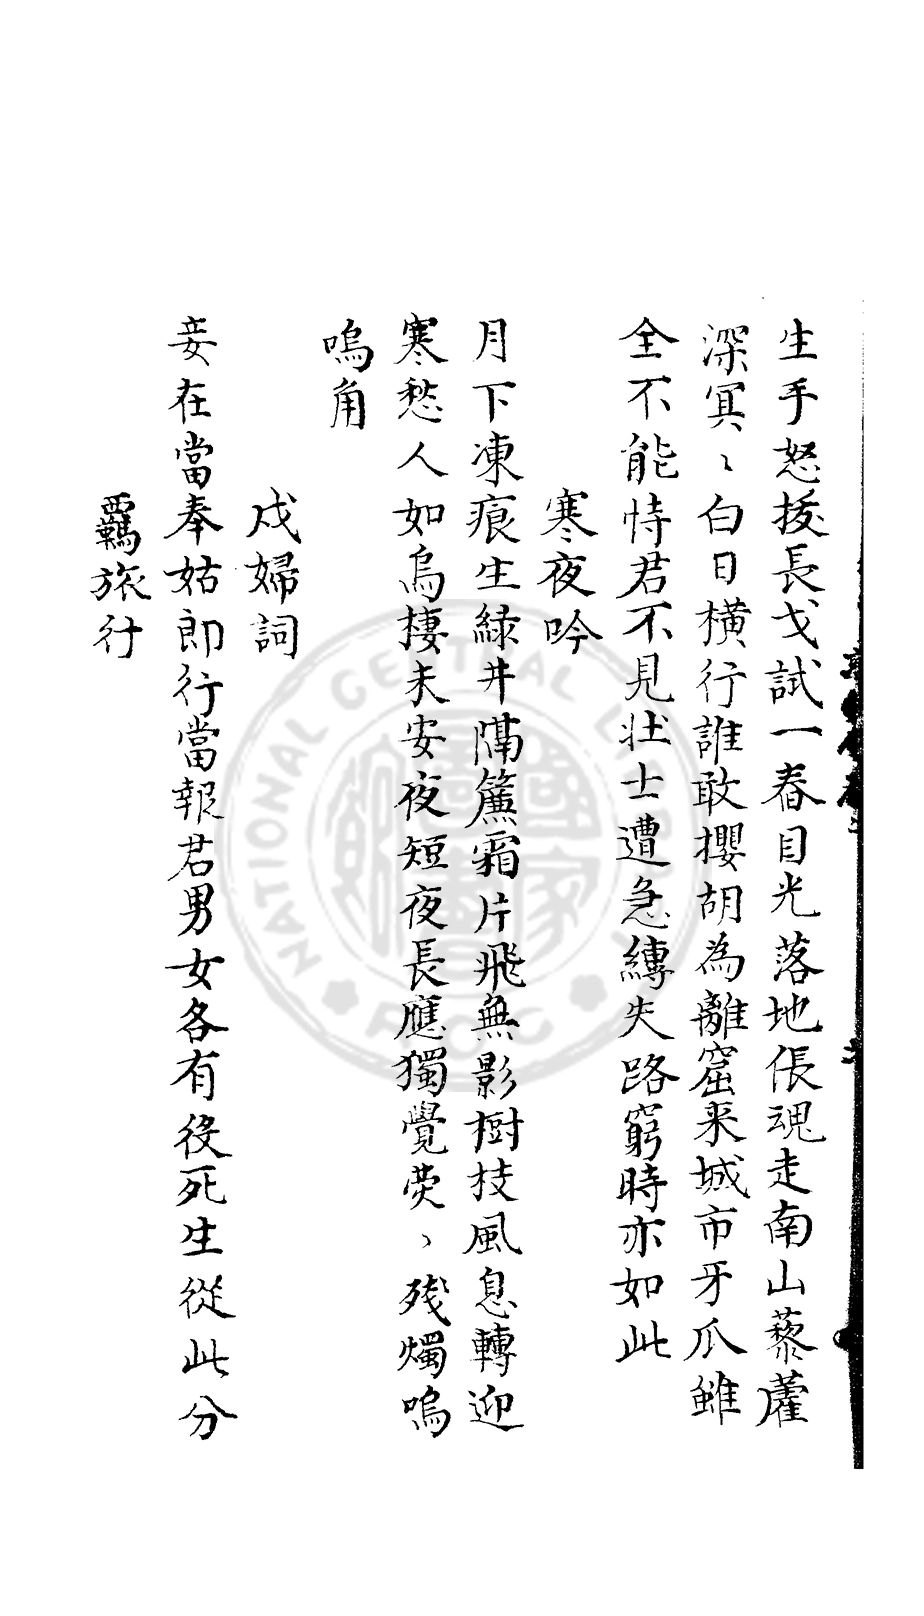 生手怒援長戈試一舂目光落地倀魂走南山藜藿
深冥〻白日橫行誰敢攖胡為離窟来城市牙爪雖
全不能恃君不見壮士遭急縳失路窮時亦如此
寒夜吟
月下凍痕生緑井隔簾霜片飛無影樹技風息轉迎
寒愁人如烏棲未安夜短夜長應獨覺熒〻殘燭嗚
嗚角
戍婦詞
妾在當奉姑郎行當報君男女各有役死生從此分
羈旅行
NATIONAL CENTRAL LIBRARY